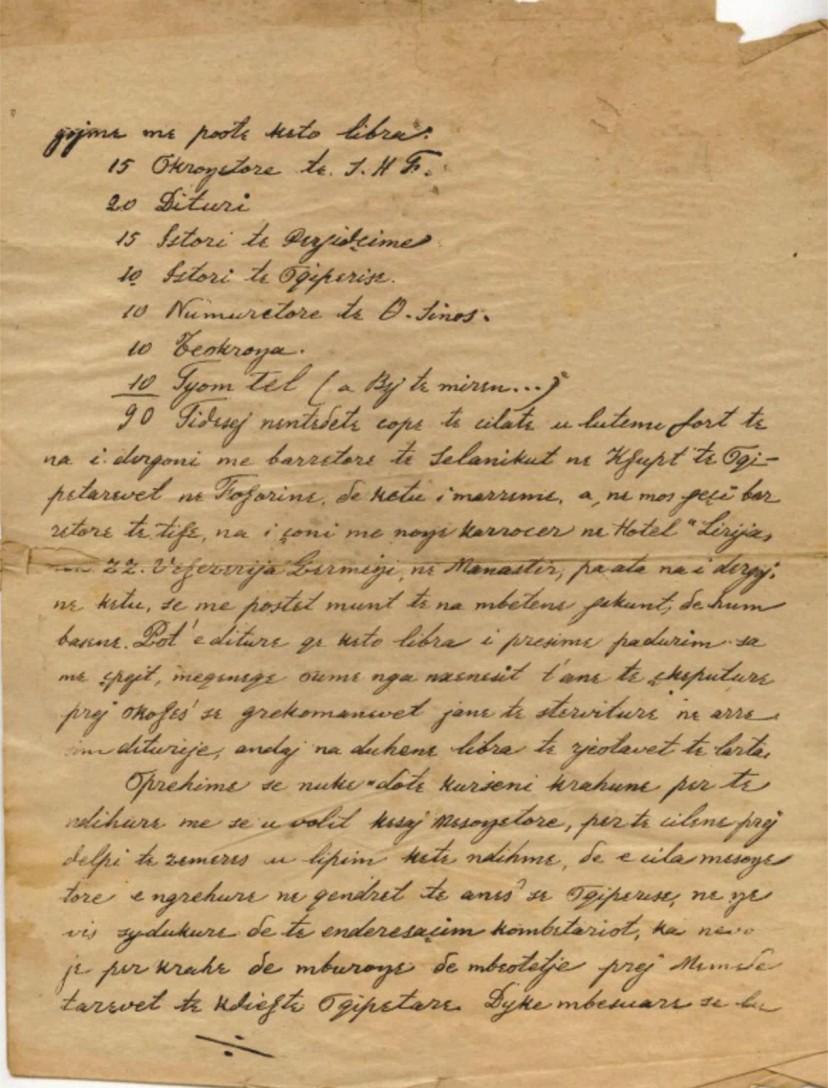 gojme me poste keto libra:
15 Okronjetore te S. H F.
20 Dituri
15 Istori te Pergjidçime
10 Istori te Ogiperise.
10 Numuretore te O. Sinos.
10 Ɛeokronja.
10 Tyom Tel ( a Bij te mireu...)
90 Tidesej nentedete cope te cilate u lutemi fort te
na i dergoni me barretore te Selanikut ne te Ogi-
petarevet ne de ketu i marreme, a, ne mos geçi bar
retore te tife, na i çoni me nonje karrocer ne Hotel "Lirija,
ZZ. ne Manastir, pa ata na i dergoj.
ne ketu, se me postet munt te na mbetene gekunt, de hum
basene. Pot' e diture ge keto libra i presime padurim sa
me megenege nga nxenesit t'ane te ekeputure
prej se grekomanevet jane te sterviture ne arre
diturije, andaj na duhene libra te te larta,
Oprehime se nuke dote kurseni krahune per te
ndihure me se u volit kesaj mesonjetore, per te cilene prej
delpi te zemeres u lipim kete ndihme, de e cila mesonje
tore e ngrehure ne gendret te anes' se Ogiperise, ne nje
vis sydukure de te kombetariot, ka nevo
je per krahe de mburonje de mbeotetje prej Memede
tarevet te Ogipetare. Dyke mbesuare se